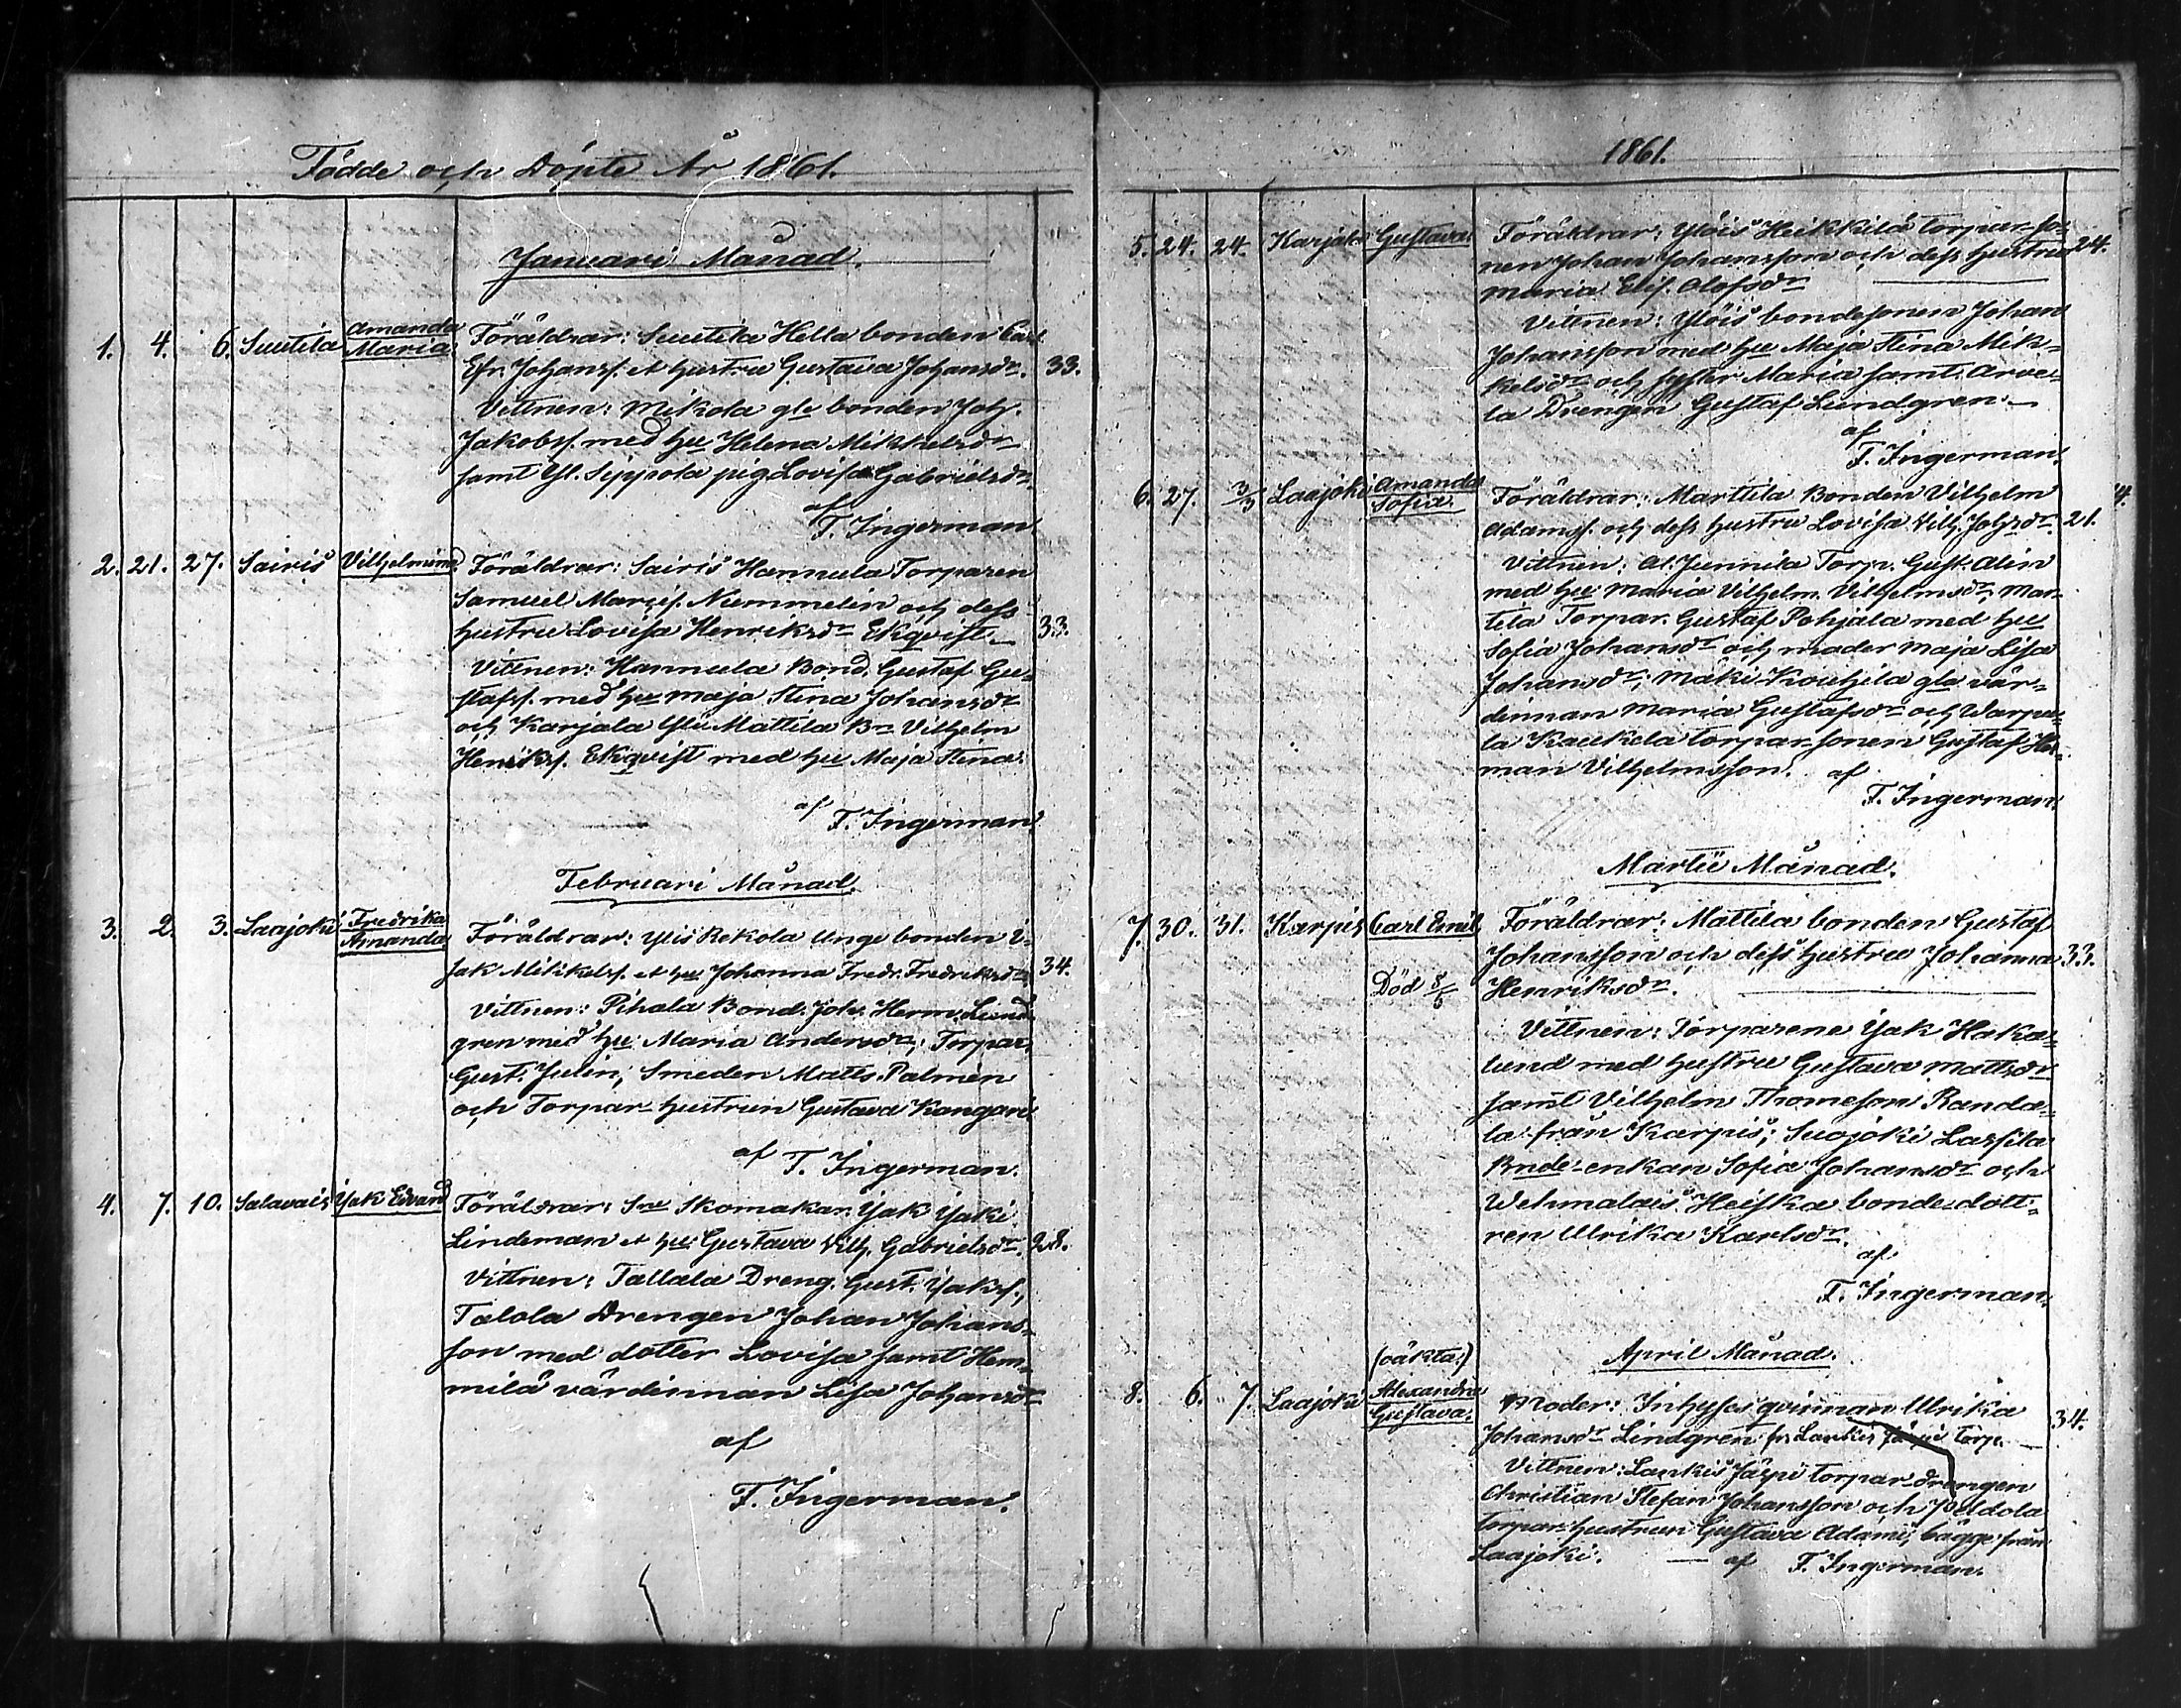 Födde och Döpte År 1861.
Januari Månad.
1. 4. 6. Suutila Amanda Maria. Föräldrar: Suutila Hella bonden Carl
Efr. Johanss. et hustru Gustava Johansdr. 33.
Vittnen: Mikola gle bonden Joh.
Jakobss. med hu Helena Mikkelsdr
samt Yl. Sippola pig. Lovisa Gabrielsdr.
af
F. Ingerman.
2. 21. 27. Sairis Vilhelmina Föräldrar: Sairis Hannula Torparen
Samuel Nummelin och dess
hustru Lovisa Henriksdr Ekqvist. 33.
Vittnen: Hannula Bond. Gustaf Gu-
stafss. med hu Maja Stina Johansdr
och Karjala Yli Mattila Bn Vilhelm
Henrikss. Ekqvist med hu Maja Stina.
af
F. Ingerman.
Februari Månad.
3. 2. 3. Laajoki Fredrika Amanda Föräldrar: Ylis Rekola Unge bonden I-
sak Mikkelss. et hu Johanna Fredr. Fredriksdr. 34.
Vittnen: Pihala Bond. Joh. Herm. Lind-
gren med hu Maria Andersdr; Torpar.
Gust. Julin, Smeden Matts Palmen
och Torpar-hustrun Gustava Kangari.
af F. Ingerman.
4. 7. 10. Salavais Isak Edvard Föräldrar: Skomakar. Isak Isaks.
Lindeman et hu Gustava Vilh. Gabrielsdr. 28.
Vittnen: Tallala Dreng. Gust. Isakss.,
Talola Drengen Johan Johans-
son med dotter Lovisa samt Hem-
milä värdinnan Lisa Johansdr
af
F. Ingerman.
1861.
5. 24. 24. Karjala Gustava. Föräldrar: Yläis Heikkilä torpar-so-
nen Johan Johansson och dess hustru 24.
Maria Elis. Olofsdr
Vittnen: Yläis bondesonen Johan
Johansson med hu Maja Stina Mik-
kelsdr och syster Maria samt Arve-
la Drengen Gustaf Lundgren.
af
F. Ingerman.
6. 27. 3/3 Laajoki Amanda Sofia. Föräldrar: Marttila Bonden Vilhelm
Adamss. och dess hustru Lovisa Vilh. Johsdr. 21.
Vittnen: Al. Junnila Torp. Gust. Alin
med hu Maria Vilhelm. Vilhelmsdr, Mar-
tila Torpar. Gustaf Pohjala med hu
Sofia Johansdr och moder Maja Lisa
Johansdr; Mäki-Kouhila gla vär-
dinnan Maria Gustafsdr och Warpu-
la Kaukola torpar-sonen Gustaf Her-
man Vilhelmsson. af
F. Ingerman.
Martii Månad.
7. 30. 31. Karpis Carl Emil, Föräldrar: Mattila bonden Gustaf
Johansson och dess hustru Johanna 33.
Död Henriksdr.
Vittnen: Torparene Isak Haka-
lund med hustru Gustava Mattsdr
samt Vilhelm Thomesson Randa-
la från Karpis; Suojoki Lassila
Bnde-enkan Sofia Johansdr och
Wehmalais Heiska bonde-dott-
ren Ulrika Karlsdr.
af
F. Ingerman.
April Månad.
(oäkta:)
8. 6. 7. Laajoki Alexandra Gustava. Moder: Inhyses qvinnan Ulrika
Johansdr Lindgren fr. Lankis Jäspi torp. 34.
Vittnen: Lankis Jäspi torpar drengen
Christian Stefan Johansson och Peldola
torpar-hustrun Gustava Adams, bägge från
Laajoki. af F. Ingerman.